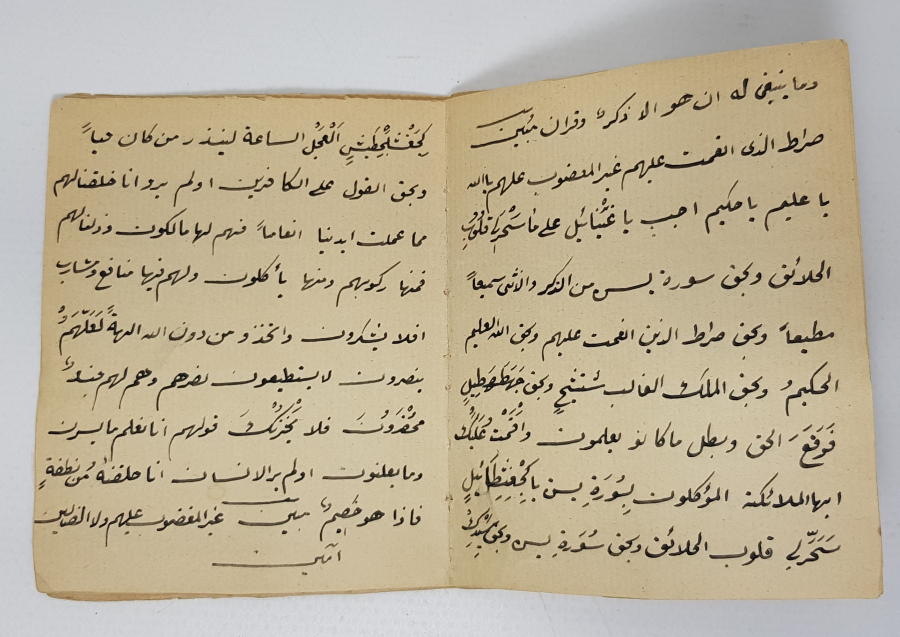 وما ينبغى له ان هو الا ذكرٌ وقران مبين
صراط الذى انعمت عليهم غير المغضوب عليهم يا الله
يا عليم يا حكيم اجب يا على ما
الخلائق وبحق سورة يس من الذكر والانثى سميعاً
مطيعاً وبحق صراط الذين انعمت عليهم وبحق الله العليم
الحكيمُ وبحق الملك الغالب وبحق
فَوَقَعَ الحق وبطل ما كانو يعلمون واقسمت عَلَيْكُ
ايها الملائكة المؤكلون بِسُوَرَةِ يس
سَخَّرلِي قلوب الخلائق وبحق سُوَرَةِ يس وبحق
الْعَجَلْ الساعة لينذر من كان حياً
وبحق القول على الكافرين اولم يروا انا خلقنا لهم
مما عملت ايدينا انعاماً فهم لها مالكون وذللنا لهم
فمنها ركوبهم ومنها يأكلون ولهم فيها منافع ومشارب
افلا يشكرون واتخذو من دون الله الهةً لَعَلَّهُمْ
ينصرون لا يستطيعون نصرهم وهم لهم جندٌ
محْضَرُونَ فلا يَحْزُنْكَ قولهم انا نعلم ما يسرن
وما يعلنون اولم ير الانسان انا خلقنهُ من نطفةٍ
فاذا هو خَصِيمٌ مبين غير المغضوب عليهم ولا الضالين
آمين